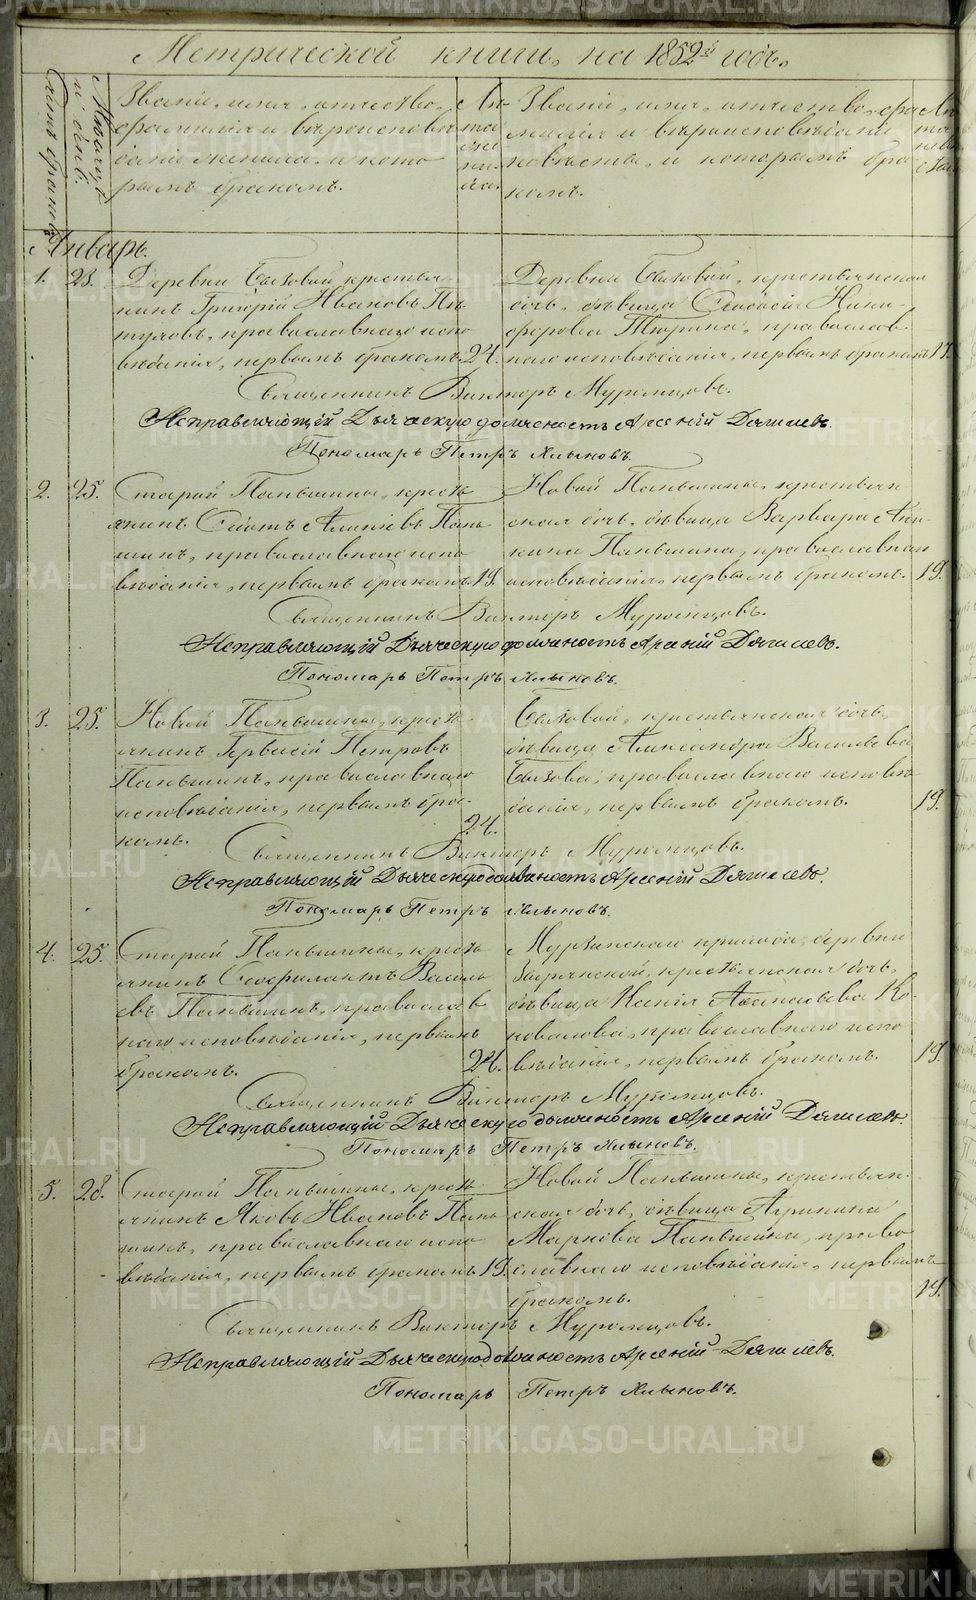 Метрической книги, на 1852й годъ.
Счетъ браковъ
Мѣсяцъ и день.
Званіе, имя, отчество,
фамилія и вѣроисповѣ
даніе жениха, и кото
рымъ бракомъ.
Лѣ
та
же
ни
ха.
Званіе, имя, отчество, фа
милія и вѣроисповѣданіе
невѣсты, и которымъ бра
комъ.
Лѣ
та
невѣ
сты
Январь.
1. 23. Деревни Бызовой крестья
нинъ Григорій Ивановъ Пѣ
туховъ, православнаго испо
вѣданія, первымъ бракомъ. 24.
Деревни Бызовой, крестьянская
дочь, дѣвица Ники-
форова православ
наго исповѣданія, первымъ бракомъ 17.
Священникъ Викторъ Муромцовъ.
Исправляющій Дьяческую должность Арсеній Дягилевъ.
Пономарь Петръ Хлыновъ.
2. 25. Старой Паньшины, кресть
янинъ Пань
шинъ, православнаго испо
вѣданія, первымъ бракомъ. 18.
Новой Паньшины, крестьян
ская дочь, дѣвица Варвара Ани-
кина Паньшина, православнаго
исповѣданія, первымъ бракомъ. 19.
Священникъ Викторъ Муромцовъ.
Исправляющій Дьяческую должность Арсеній Дягилевъ.
Пономарь Петръ Хлыновъ.
3. 25. Новой Паньшины, кресть
янинъ Гервасій Петровъ
Паньшинъ, православнаго
исповѣданія, первымъ бра-
комъ. 24.
Бызовой, крестьянская дочь,
дѣвица Александра Васильева
Бызова, православнаго исповѣ
данія, первымъ бракомъ. 19.
Священникъ Викторъ Муромцовъ.
Исправляющій Дьяческую должность Арсеній Дягилевъ.
Пономарь Петръ Хлыновъ.
4. 25. Старой Паньшины, кресть
янинъ Ѳеофилактъ Василь
евъ Паньшинъ, православ
наго исповѣданія, первымъ
бракомъ. 24.
Мурзинскаго прихода, деревни
крестьянская дочь,
дѣвица Ксенія Аѳанасьева Ко-
новалова, православнаго испо
вѣданія, первымъ бракомъ. 19.
Священникъ Викторъ Муромцовъ.
Исправляющій Дьяческую должность Арсеній Дягилевъ.
Пономарь Петръ Хлыновъ.
5. 28. Старой Паньшины, кресть
янинъ Яковъ Ивановъ Пань
шинъ, православнаго испо
вѣданія, первымъ бракомъ 19.
Новой Паньшины, крестьян
ская дочь, дѣвица Агрипина
Маркова Паньшина, право
славнаго исповѣданія, первымъ
бракомъ. 19.
Священникъ Викторъ Муромцовъ.
Исправляющій Дьяческую должность Арсеній Дягилевъ.
Пономарь Петръ Хлыновъ.
METRIKI.GASO-URAL.RU